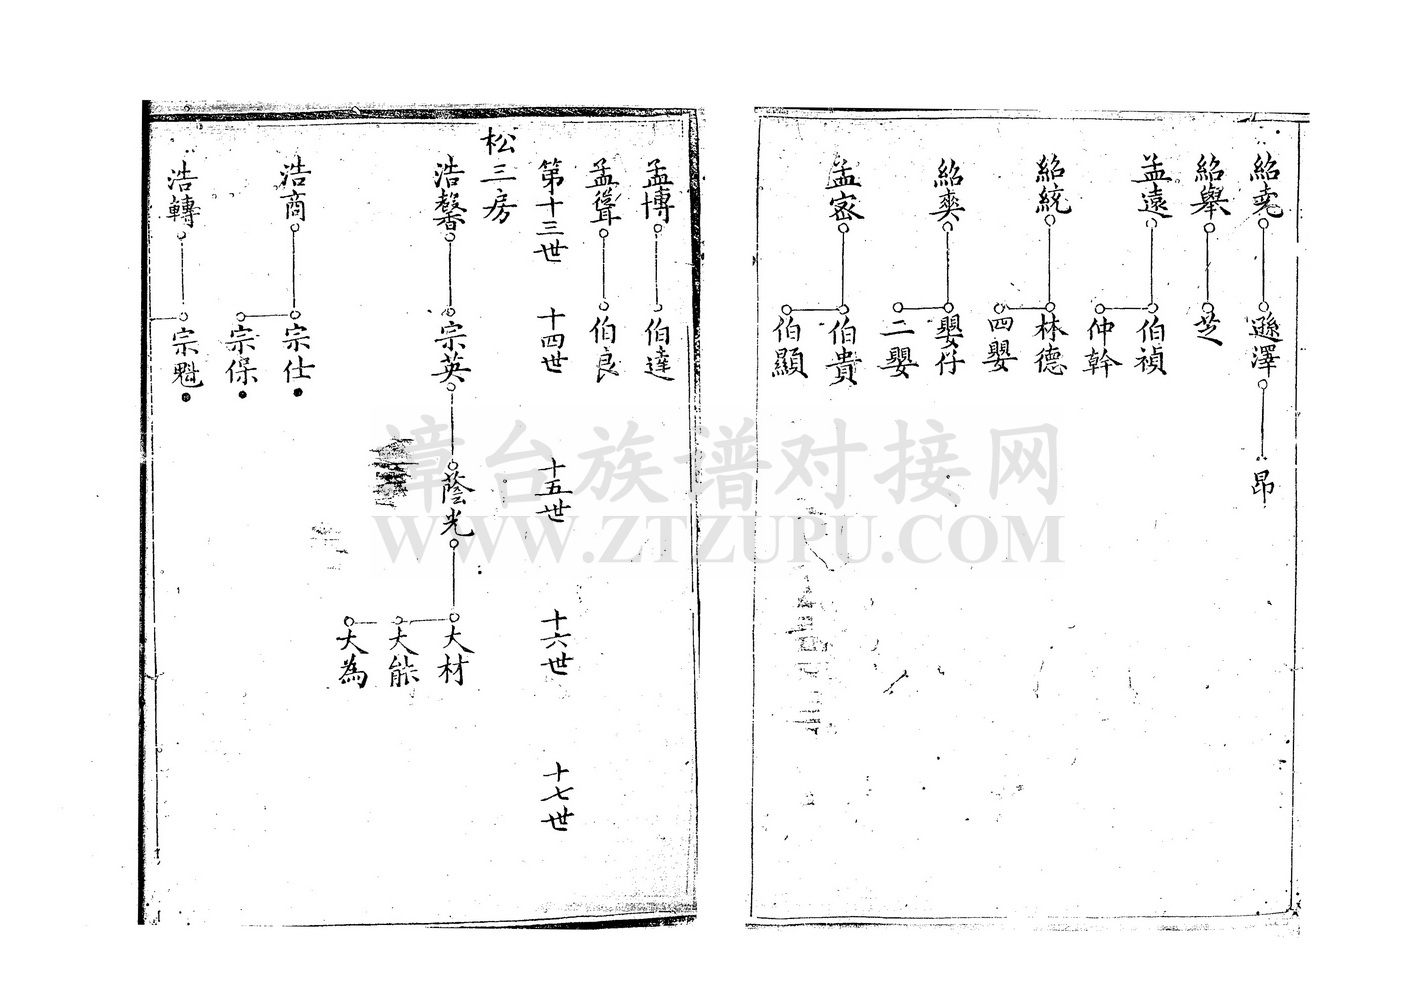 紹堯 遜澤 昂
紹舉 芝
孟遠 伯禎 仲幹
紹統 林德 四嬰
紹奕 嬰仔 二嬰
孟密 伯貴 伯顯
孟博 伯達
孟聳 伯良
第十三世 十四世 十五世 十六世 十七世
松三房
浩馨 宗英 蔭光 大材 大能 大為
浩商 宗仕 宗保
浩轉 宗魁
漳台族谱对接网
WWW.ZTZUPU.COM